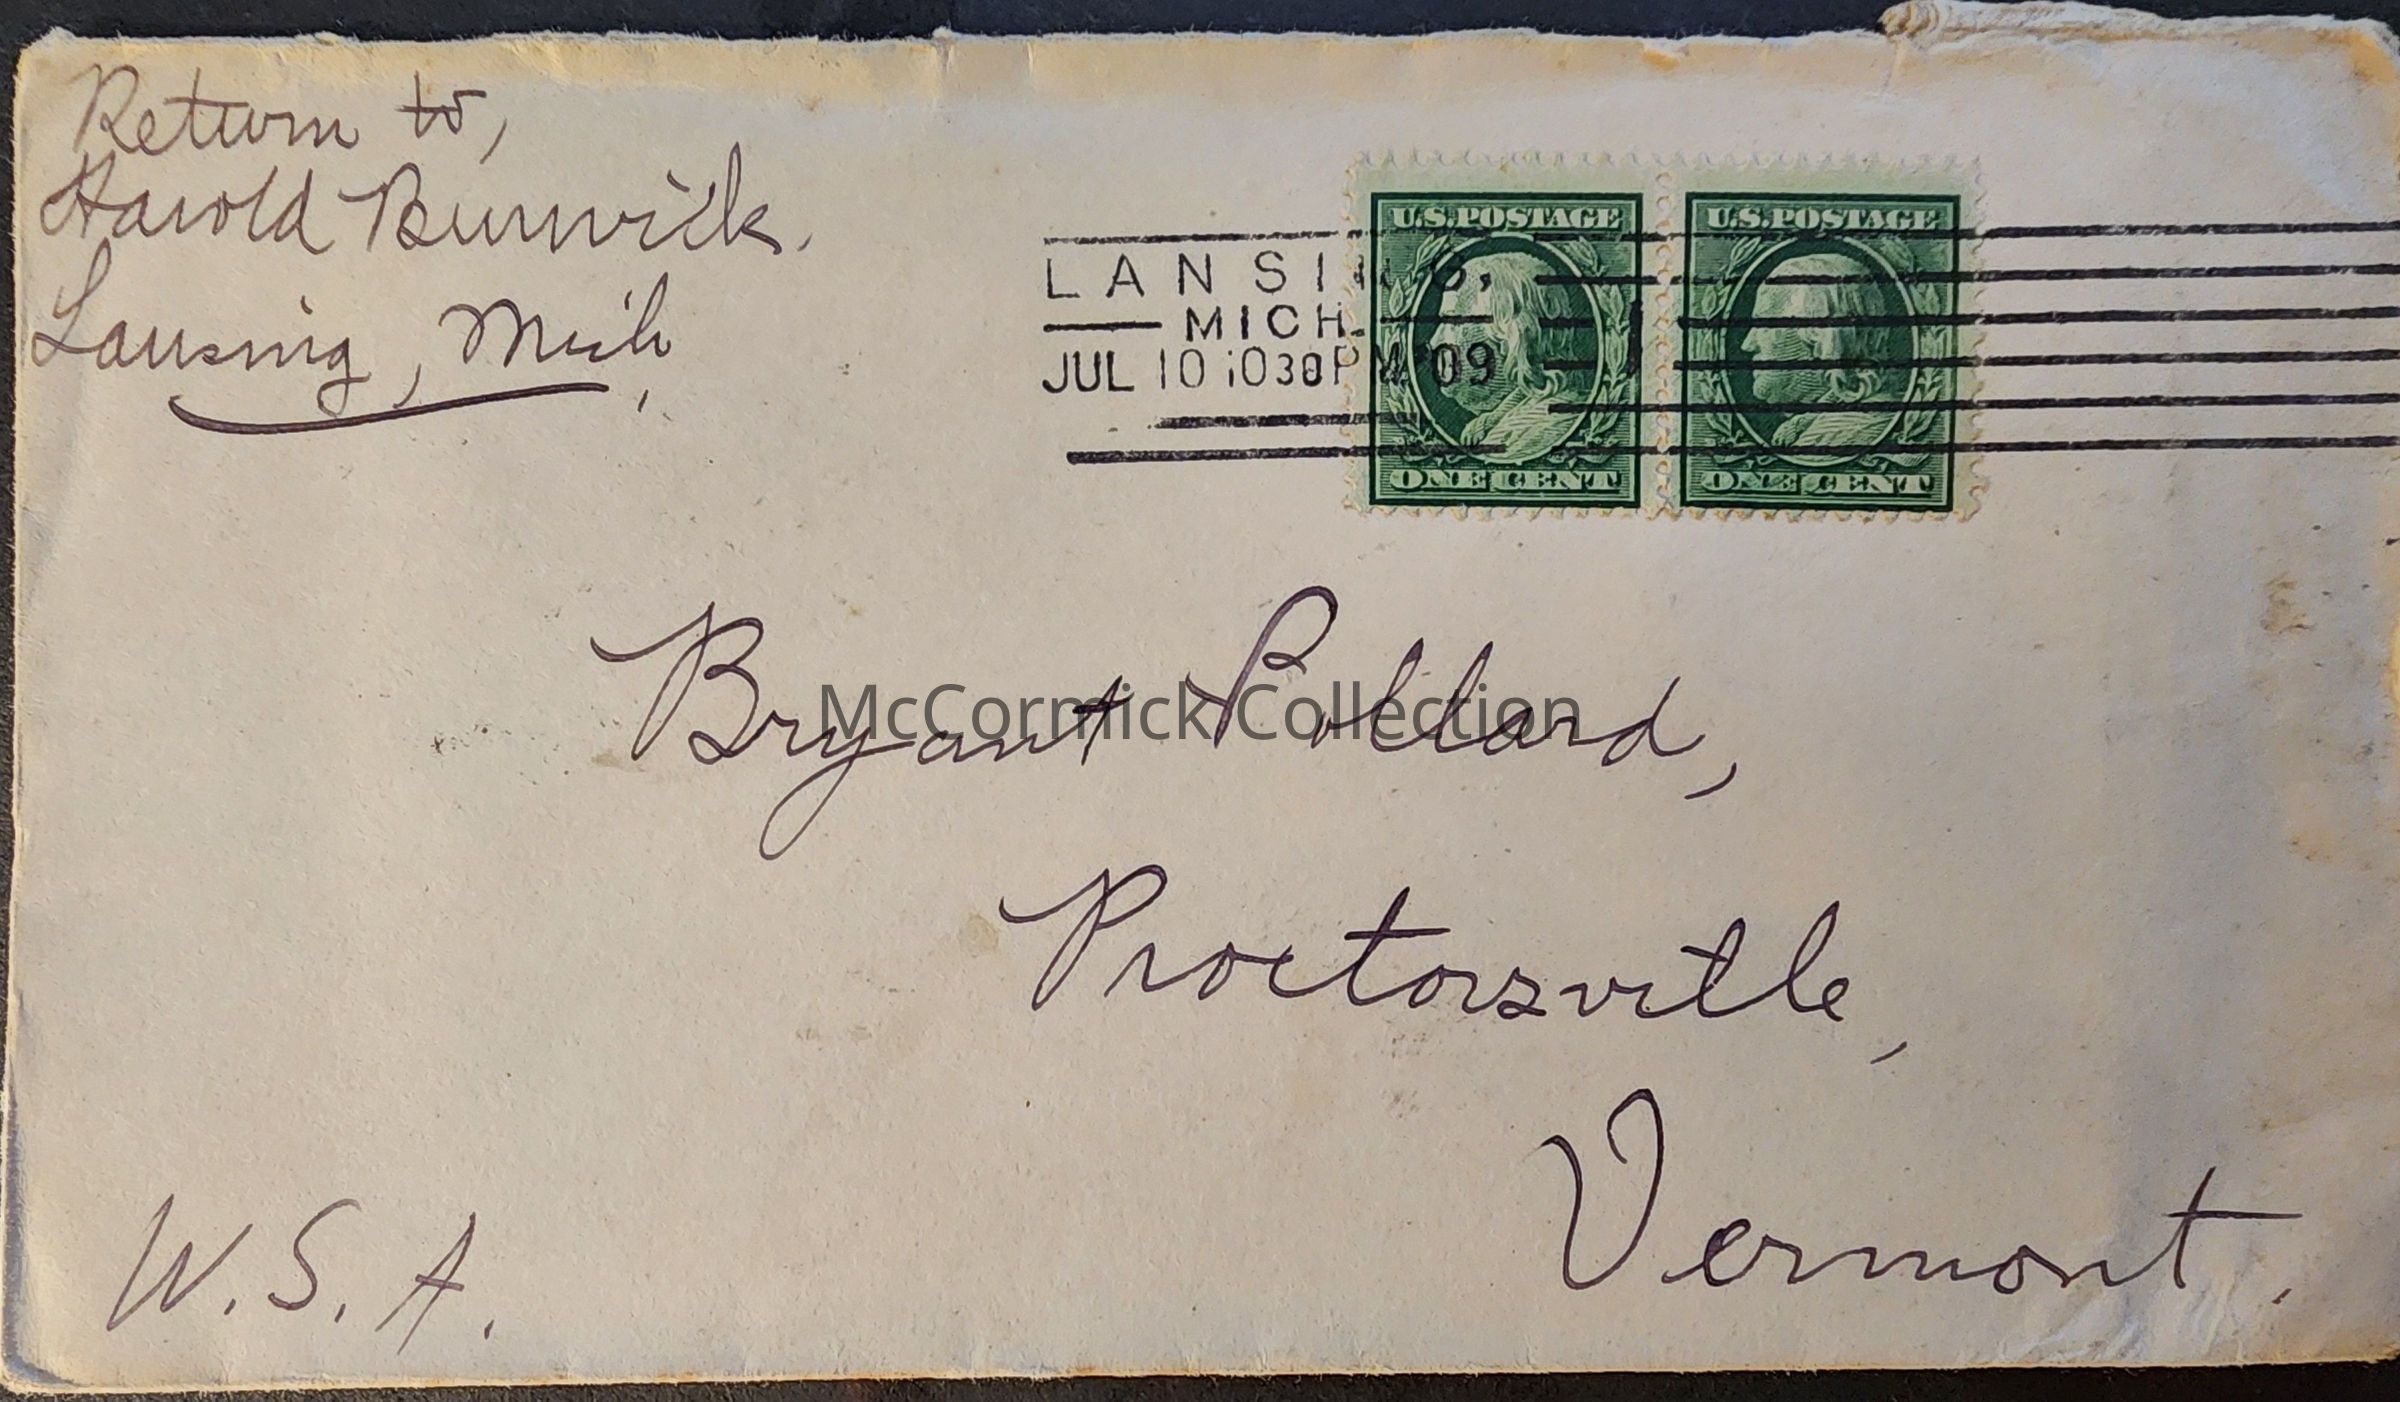 Return to,
Harold Burwick.
Lansing, Mich,
LANSING,
MICH.
JUL 10 1030PM '09
U.S. POSTAGE
ONE CENT
U.S. POSTAGE
ONE CENT
Bryant Pollard,
McCormick Collection
Proctorsville,
Vermont.
W.S.A.